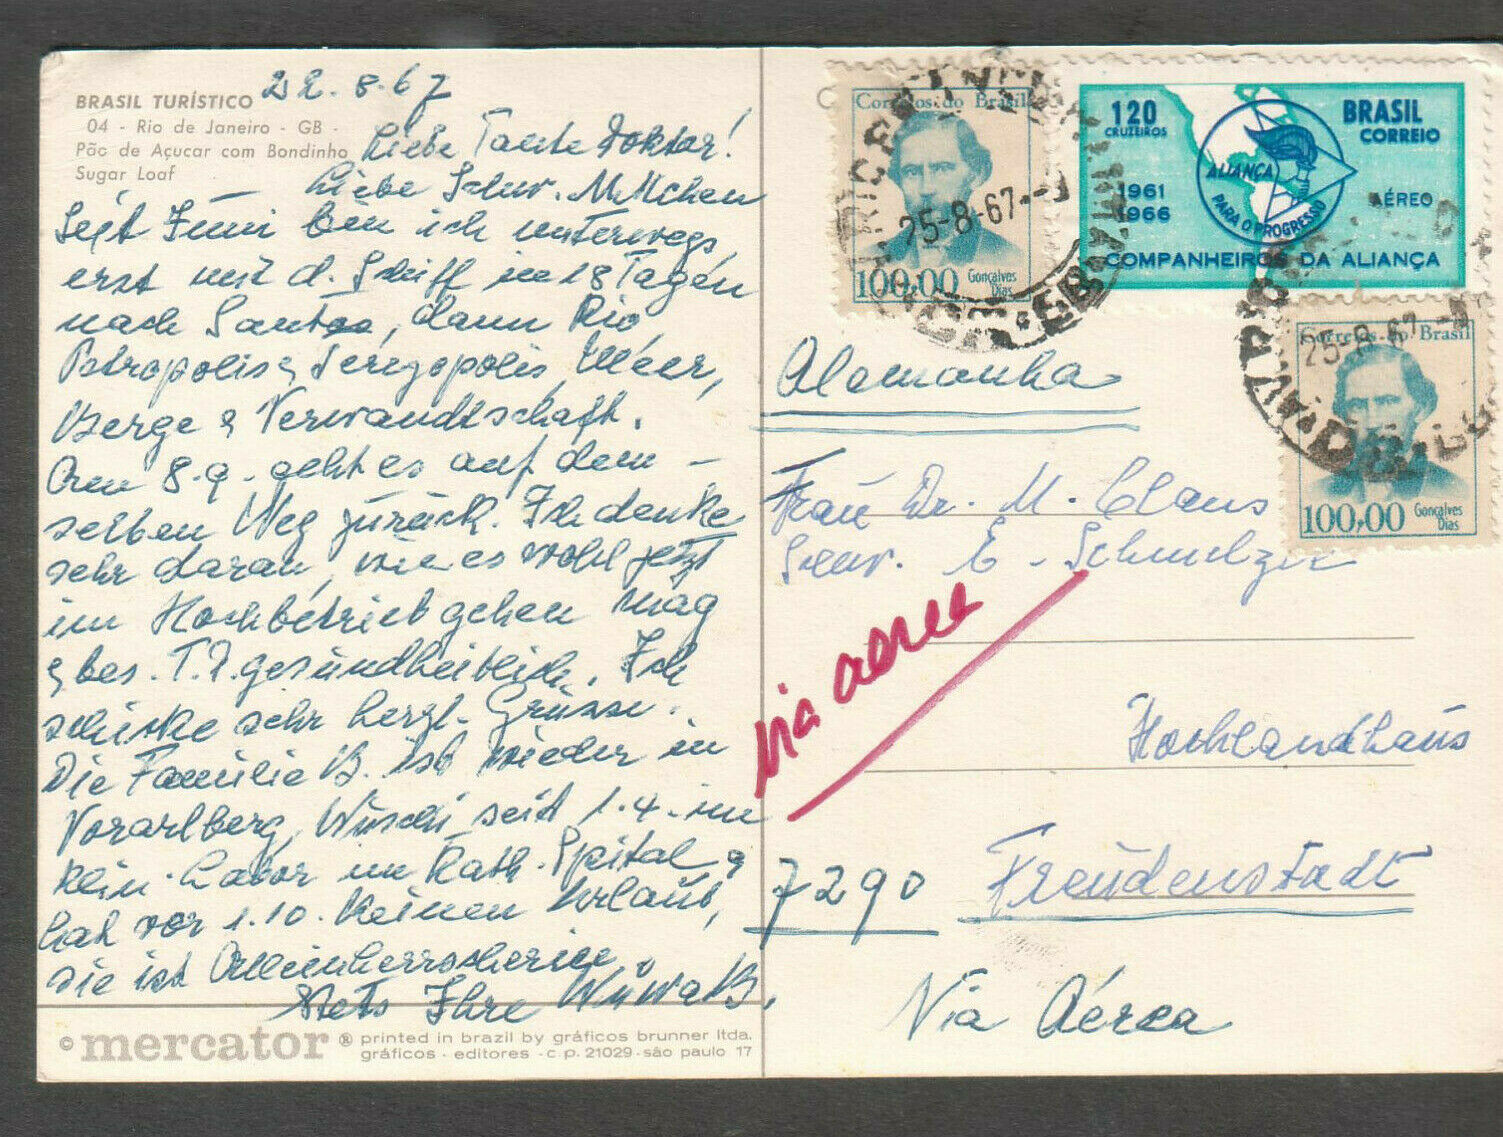 BRASIL TURÍSTICO
04 - Rio de Janeiro - GB -
Pão de Açucar com Bondinho
Sugar Loaf
22.8.67
Liebe Tante Doktor!
Liebe Schw.
Seit Juni bin ich unterwegs,
erst mit d. Schiff in 18 Tagen
nach Santos, dann Rio,
Petropolis & Terezopolis, Meer,
Berge & Verwandtschaft.
Am 8.9. geht es auf dem-
selben Weg zurück. Ich denke
sehr daran, wie es wohl jetzt
im Hochbetrieb gehen mag
& bes. T. D. gesundheitlich. Ich
schicke sehr herzl. Grüsse.
Die Familie B. ist wieder in
Vorarlberg, Wuschi seit 1.4. im
klin. Labor im Kath. Spital &
hat vor 1.10. keinen Urlaub,
sie ist Alleinherrscherin.
Stets Ihre B.
© mercator ® printed in brazil by gráficos brunner ltda.
gráficos - editores - c p. 21029 - são paulo 17
Correios do Brasil
100,00 Gonçalves Dias
25-8-67
120 CRUZEIROS
BRASIL CORREIO
ALIANÇA PARA O PROGRESSO
1961
1966
AÉREO
COMPANHEIROS DA ALIANÇA
Correios do Brasil
100,00 Gonçalves Dias
25-8-67
Alemanha
Frau Dr. M. Claus
Schw. E. Schmelzer
via aerea
Hochlandhaus
7290 Freudenstadt
Via Aérea